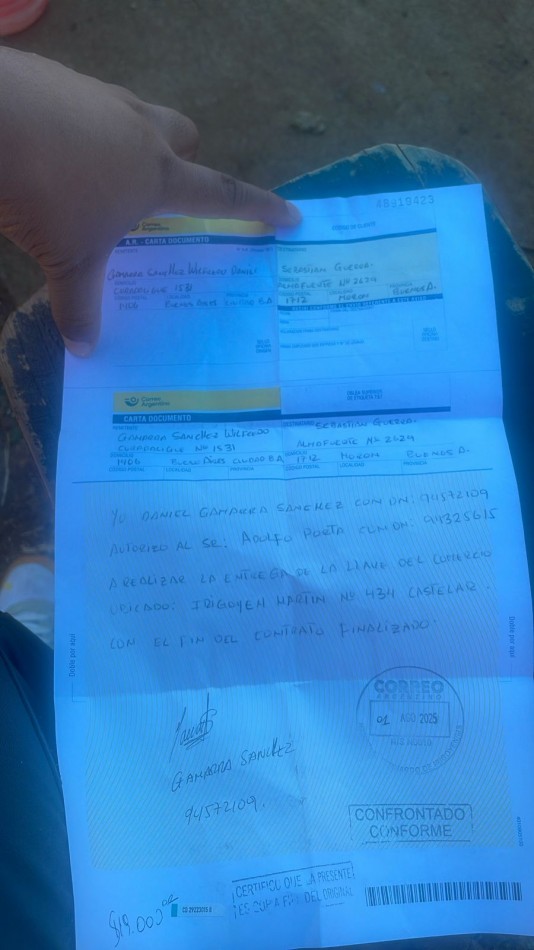 48919423
Correo
Argentino
A.R. - CARTA DOCUMENTO
GAMARRA SANCHEZ WILFREDO DANIEL
SEBASTIAN GUERRA.
1531
ALMAFUERTE Nº 2624
1406 BUENOS AIRES CIUDAD B.A
1712 MORON BUENOS A.
Correo
Argentino
CARTA DOCUMENTO
GAMARRA SANCHEZ WILFREDO
SEBASTIAN GUERRA.
Nº 1531
ALMAFUERTE Nº 2624
DOMICILIO
DOMICILIO
1406 BUENOS AIRES CIUDAD B.A
1712 MORON BUENOS A.
CÓDIGO POSTAL LOCALIDAD PROVINCIA
CÓDIGO POSTAL LOCALIDAD PROVINCIA
YO DANIEL GAMARRA SANCHEZ CON DNI: 94572109
AUTORIZO AL SR: ADOLFO PORTA CON DNI: 94325615
A REALIZAR LA ENTREGA DE LA LLAVE DEL COMERCIO
UBICADO: IRIGOYEN MARTIN Nº 434 CASTELAR.
CON EL FIN DEL CONTRATO FINALIZADO.
Doble por aquí
Doble por aquí
CORREO
ARGENTINO
01 AGO 2025
GAMARRA SANCHEZ
94572109.
CONFRONTADO
CONFORME
CERTIFICO QUE LA PRESENTE
ES COPIA FIEL DEL ORIGINAL